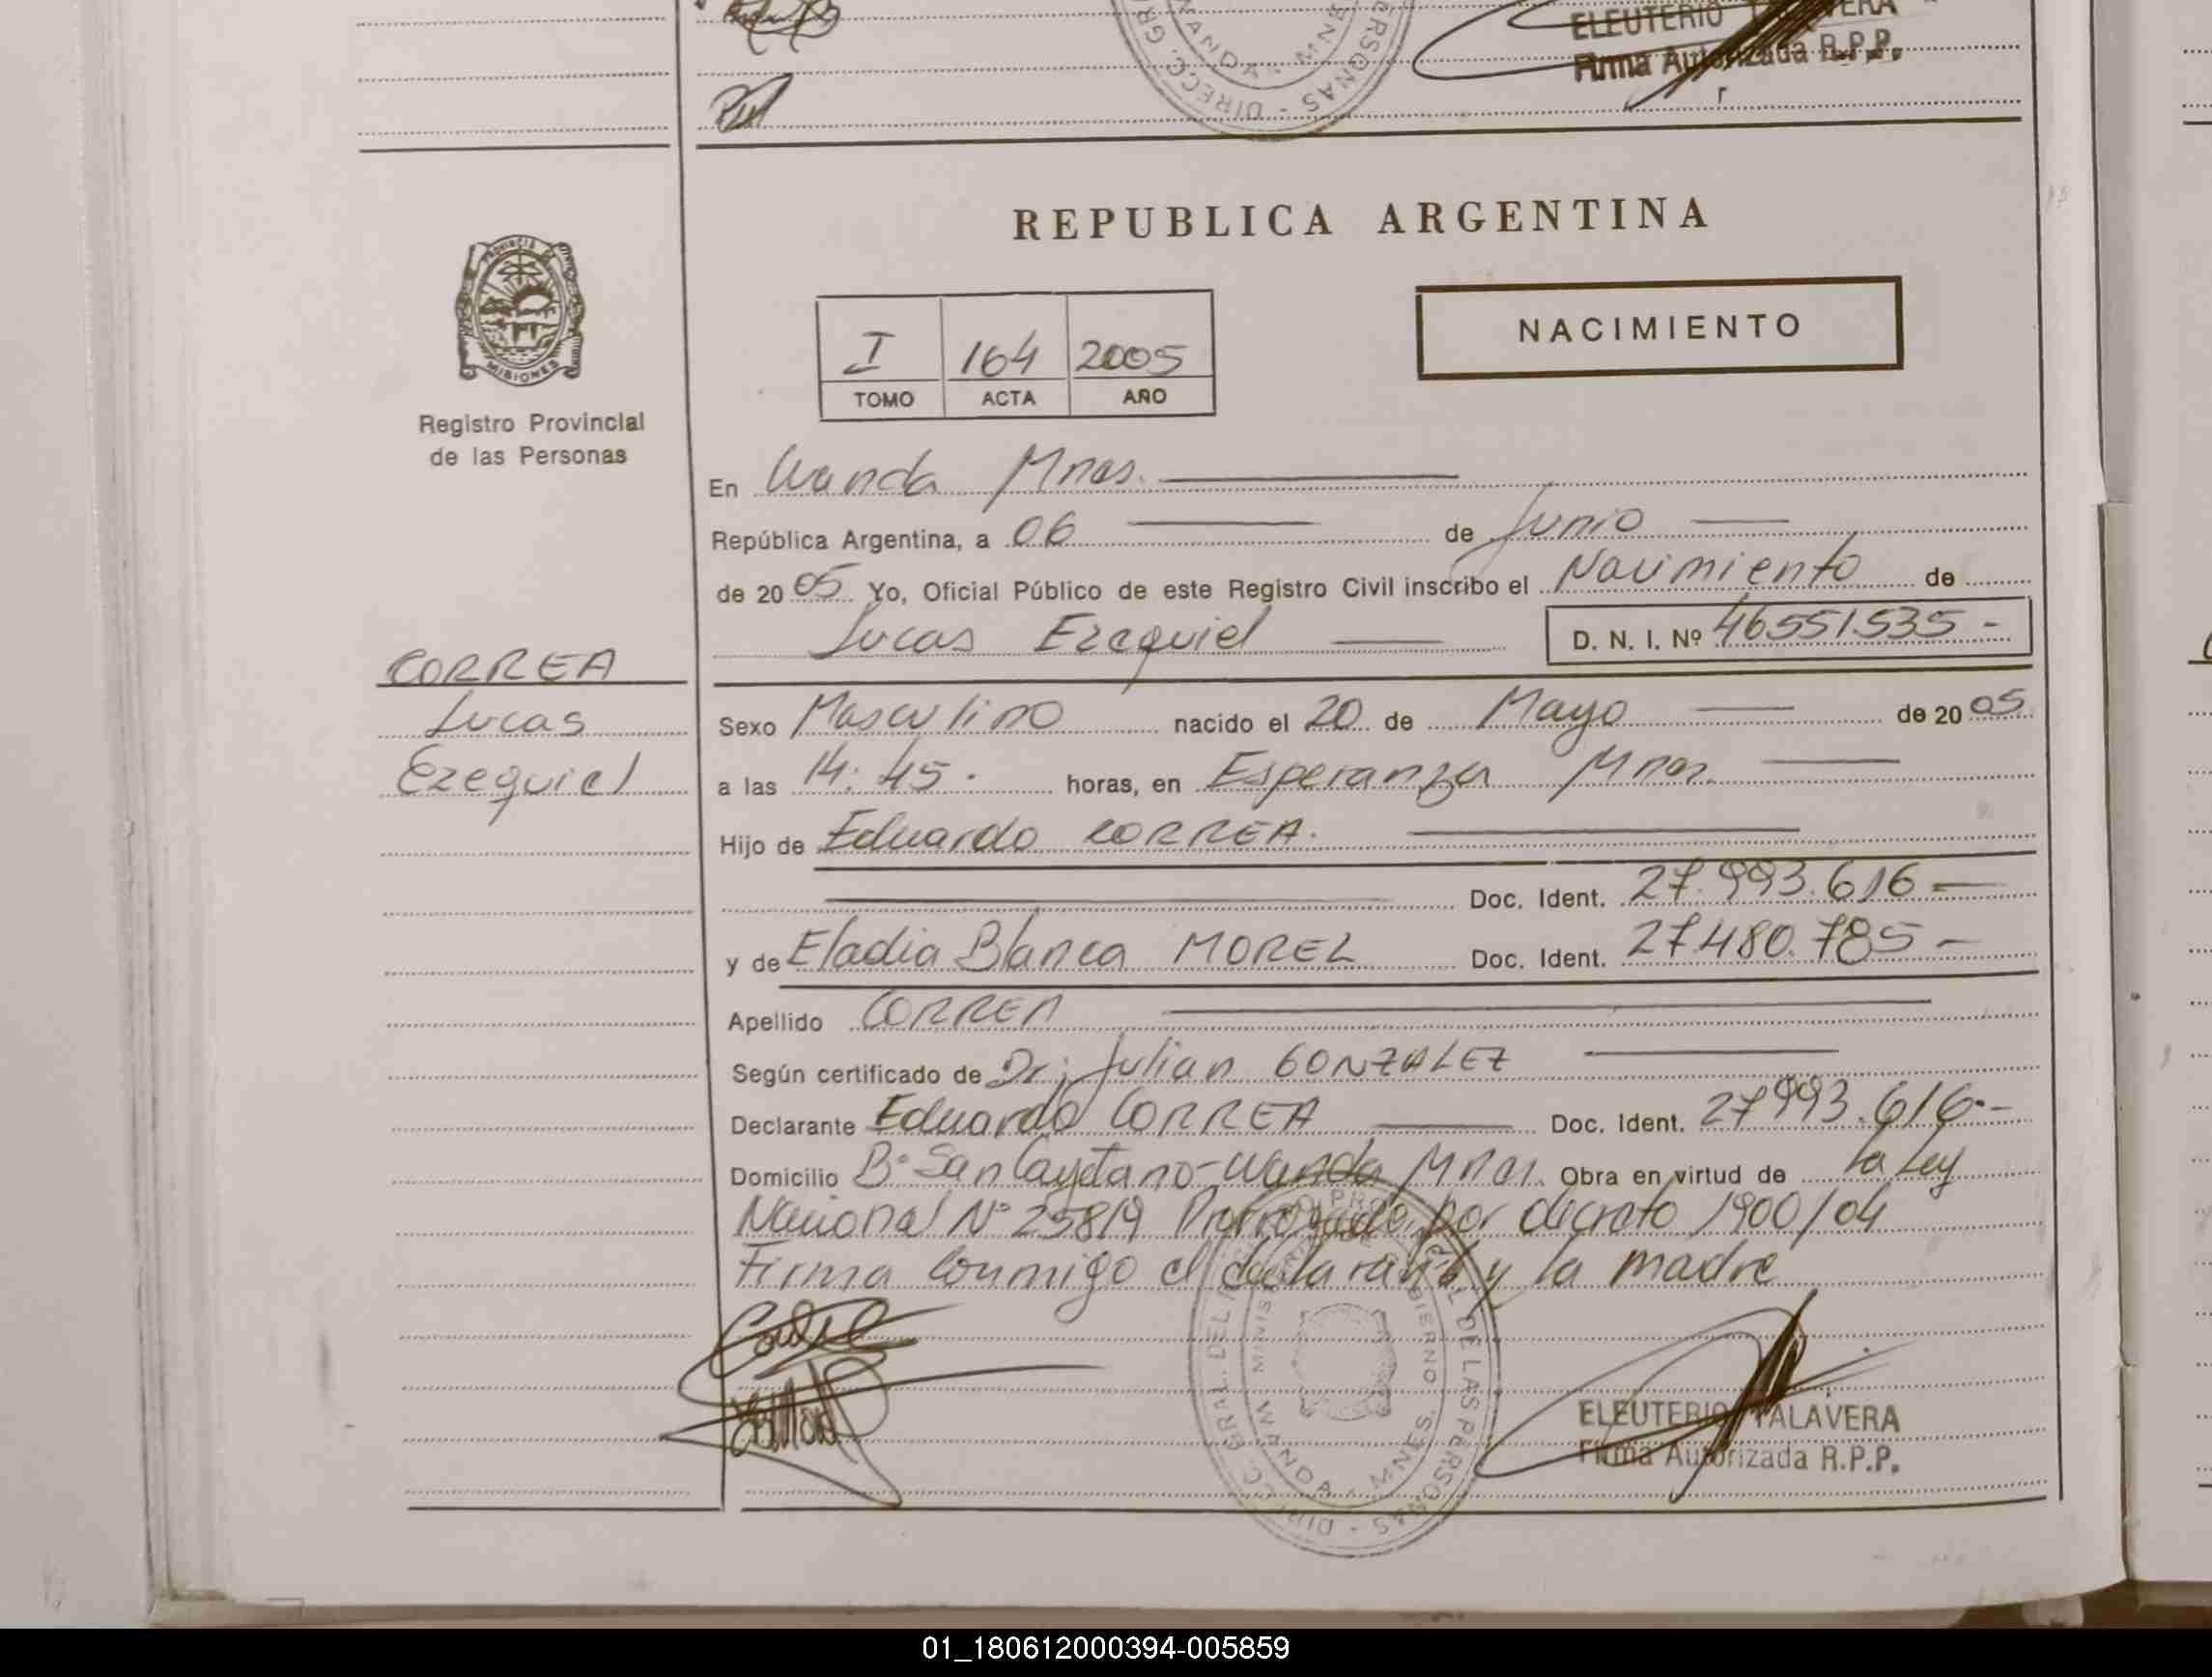 ELEUTERIO
Firma Autorizada R.P.P.
REPUBLICA ARGENTINA
NACIMIENTO
I 164 2005
TOMO ACTA AÑO
PROVINCIA
MISIONES
Registro Provincial
de las Personas
En Wanda Mnes.
República Argentina, a 06 de Junio
de 2005 Yo, Oficial Público de este Registro Civil inscribo el Nacimiento de
Lucas Ezequiel D. N. I. Nº 46551535 -
CORREA
Lucas
Ezequiel
Sexo Masculino nacido el 20 de Mayo de 2005
a las 14:45. horas, en Esperanza Mnes.
Hijo de Eduardo CORREA.
Doc. Ident. 27.993.616 -
y de Eladia Blanca MOREL Doc. Ident. 27480.785 -
Apellido CORREA
Según certificado de Dr: Julian GONZALEZ
Declarante Eduardo CORREA Doc. Ident. 27993.616.-
Domicilio Bº San Cayetano - Wanda Mnes. Obra en virtud de la Ley
Nacional Nº 25819 Prorrogado por decreto 1900/04
Firma conmigo el declarante y la madre
ELEUTERIO TALAVERA
Firma Autorizada R.P.P.
WANDA - MNES.
01_180612000394-005859